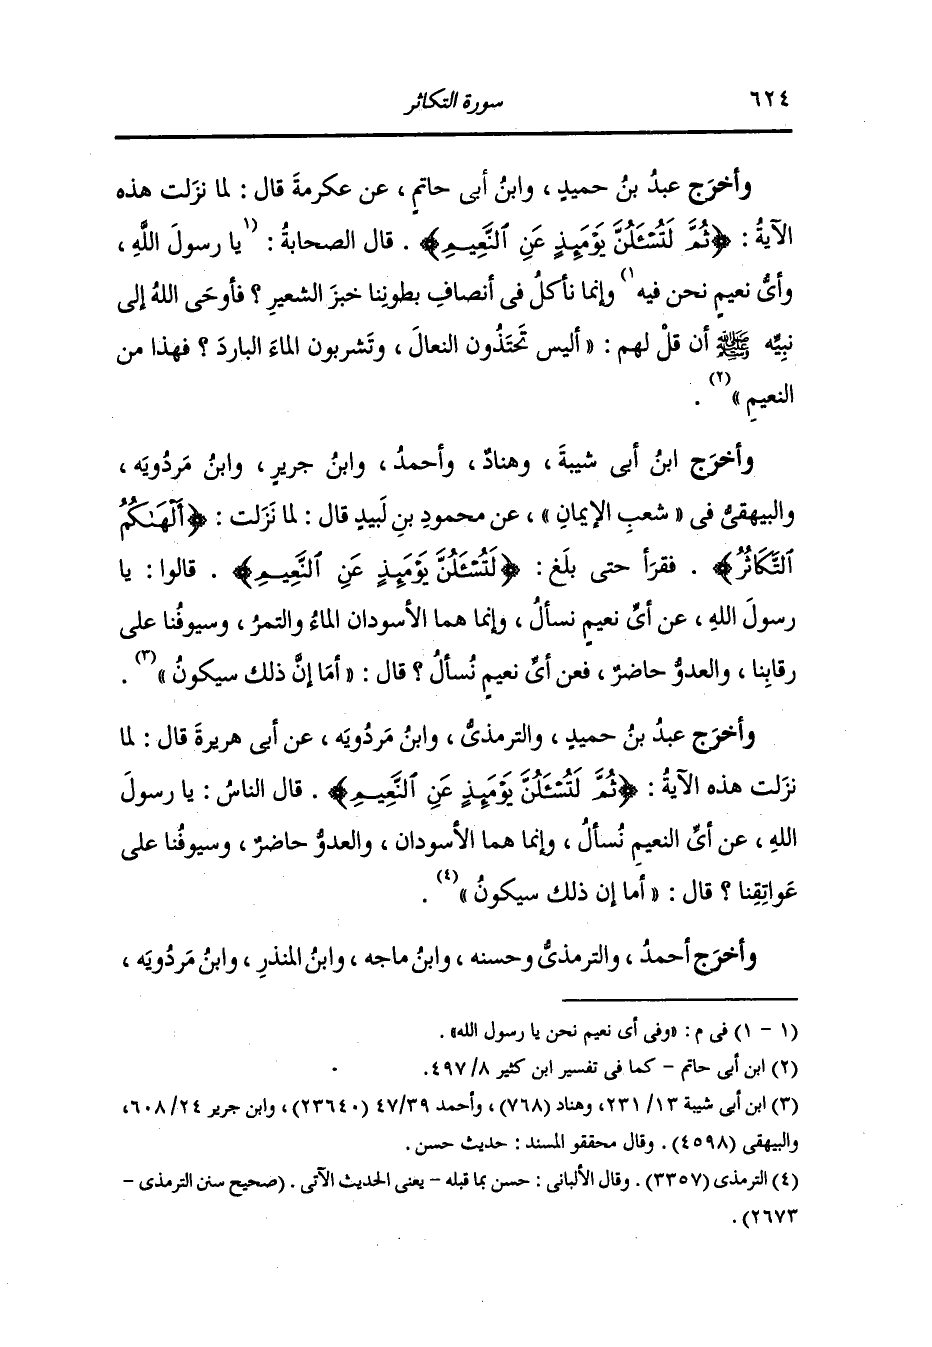 ٦٢٤
سورة التكاثر
وأخرَج عبدُ بنُ حميدٍ ، وابنُ أبى حاتمٍ ، عن عكرمةَ قال : لما نزَلت هذه
الآيةُ : ﴿ثُمَّ لَتُسْـَٔلُنَّ يَوْمَىِٕذٍ عَنِ ٱلنَّعِيمِ﴾ . قال الصحابةُ : (١يا رسولَ اللَّهِ ،
وأىُّ نعيمٍ نحن فيه١) وإنما نأكلُ فى أنصافِ بطونِنا خبزَ الشعيرِ ؟ فأوحَى اللهُ إلى
نبيِّه ﷺ أن قلْ لهم : « أليس تَحتَذُون النعالَ ، وتَشربون الماءَ الباردَ ؟ فهذا من
النعيمِ »(٢) .
وأخرَج ابنُ أبى شيبةَ ، وهنادٌ ، وأحمدُ ، وابنُ جريرٍ ، وابنُ مَردُويَه ،
والبيهقىُّ فى « شعبِ الإيمانِ » ، عن محمودِ بنِ لَبيدٍ قال : لما نَزَلت : ﴿أَلْهَىٰكُمُ
ٱلتَّكَاثُرُ﴾ . فقرَأ حتى بلَغ : ﴿لَتُسْـَٔلُنَّ يَوْمَىِٕذٍ عَنِ ٱلنَّعِيمِ﴾ . قالوا : يا
رسولَ اللهِ ، عن أىِّ نعيمٍ نسألُ ، وإنما هما الأسودان الماءُ والتمرُ ، وسيوفُنا على
رقابِنا ، والعدوُّ حاضرٌ ، فعن أىِّ نعيمٍ نُسألُ ؟ قال : « أمَا إنَّ ذلك سيكونُ »(٣) .
وأخرَج عبدُ بنُ حميدٍ ، والترمذىُّ ، وابنُ مَردُويَه ، عن أبى هريرةَ قال : لما
نزَلت هذه الآيةُ : ﴿ثُمَّ لَتُسْـَٔلُنَّ يَوْمَىِٕذٍ عَنِ ٱلنَّعِيمِ﴾ . قال الناسُ : يا رسولَ
اللهِ ، عن أىِّ النعيمِ نُسألُ ، وإنما هما الأسودان ، والعدوُّ حاضرٌ ، وسيوفُنا على
عَواتِقِنا ؟ قال : « أما إن ذلك سيكونُ »(٤) .
وأخرَج أحمدُ ، والترمذىُّ وحسنه ، وابنُ ماجه ، وابنُ المنذرِ ، وابنُ مَردُويَه ،
(١ - ١) فى م : «وفى أى نعيم نحن يا رسول الله» .
(٢) ابن أبى حاتم - كما فى تفسير ابن كثير ٨/ ٤٩٧.
(٣) ابن أبى شيبة ١٣/ ٢٣١، وهناد (٧٦٨) ، وأحمد ٤٧/٣٩ (٢٣٦٤٠) ، وابن جرير ٢٤/ ٦٠٨،
والبيهقى (٤٥٩٨) . وقال محققو المسند : حديث حسن .
(٤) الترمذى (٣٣٥٧) . وقال الألبانى : حسن بما قبله - يعنى الحديث الآتى . (صحيح سنن الترمذى -
٢٦٧٣) .